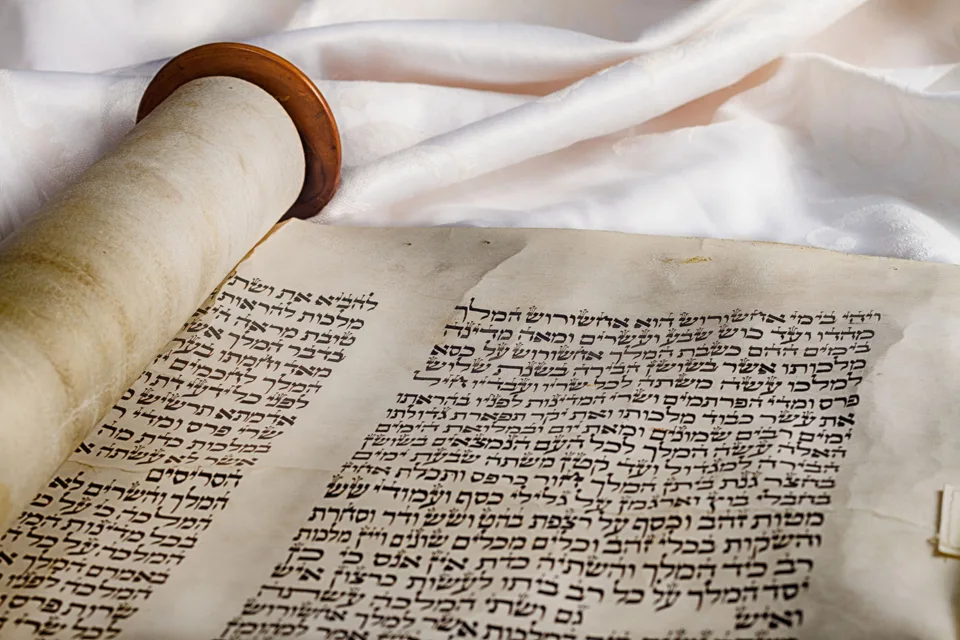 ויהי בימי אחשורוש הוא אחשורוש המלך
מהדו ועד כוש שבע ועשרים ומאה מדינה
בימים ההם כשבת המלך אחשורוש על כסא
מלכותו אשר בשושן הבירה בשנת שלוש
למלכו עשה משתה לכל שריו ועבדיו חיל
פרס ומדי הפרתמים ושרי המדינות לפניו בהראתו
את עשר כבוד מלכותו ואת יקר תפארת גדולתו
ימים רבים שמונים ומאת יום ובמלואת הימים
האלה עשה המלך לכל העם הנמצאים בשושן
הבירה למגדול ועד קטן משתה שבעת ימים
בחצר גנת ביתן המלך חור כרפס ותכלת אחוז
בחבלי בוץ וארגמן על גלילי כסף ועמודי שש
מטות זהב וכסף על רצפת בהט ושש ודר וסחרת
והשקות בכלי זהב וכלים מכלים שונים ויין מלכות
רב כיד המלך והשתיה כדת אין אנס כי כן
יסד המלך על כל רב ביתו לעשות כרצון איש
ואיש גם ושתי המלכה עשתה
מלכות אשר למלך אחשורוש
להביא את ושתי
מלכות להראות
טובת מראה היא
בדבר המלך אשר
מאד וחמתו בערה
המלך לחכמים
לפני כל ידעי דת
אדמתא תרשיש
שרי פרס ומדי
במלכות כדת מה
אשר לא עשתה
הסריסים
המלך והשרים לא
המלכה כי על
מדינות
המלכה על כל
באמרם
המלכה לפניו
שרות פרס
לכל שרי